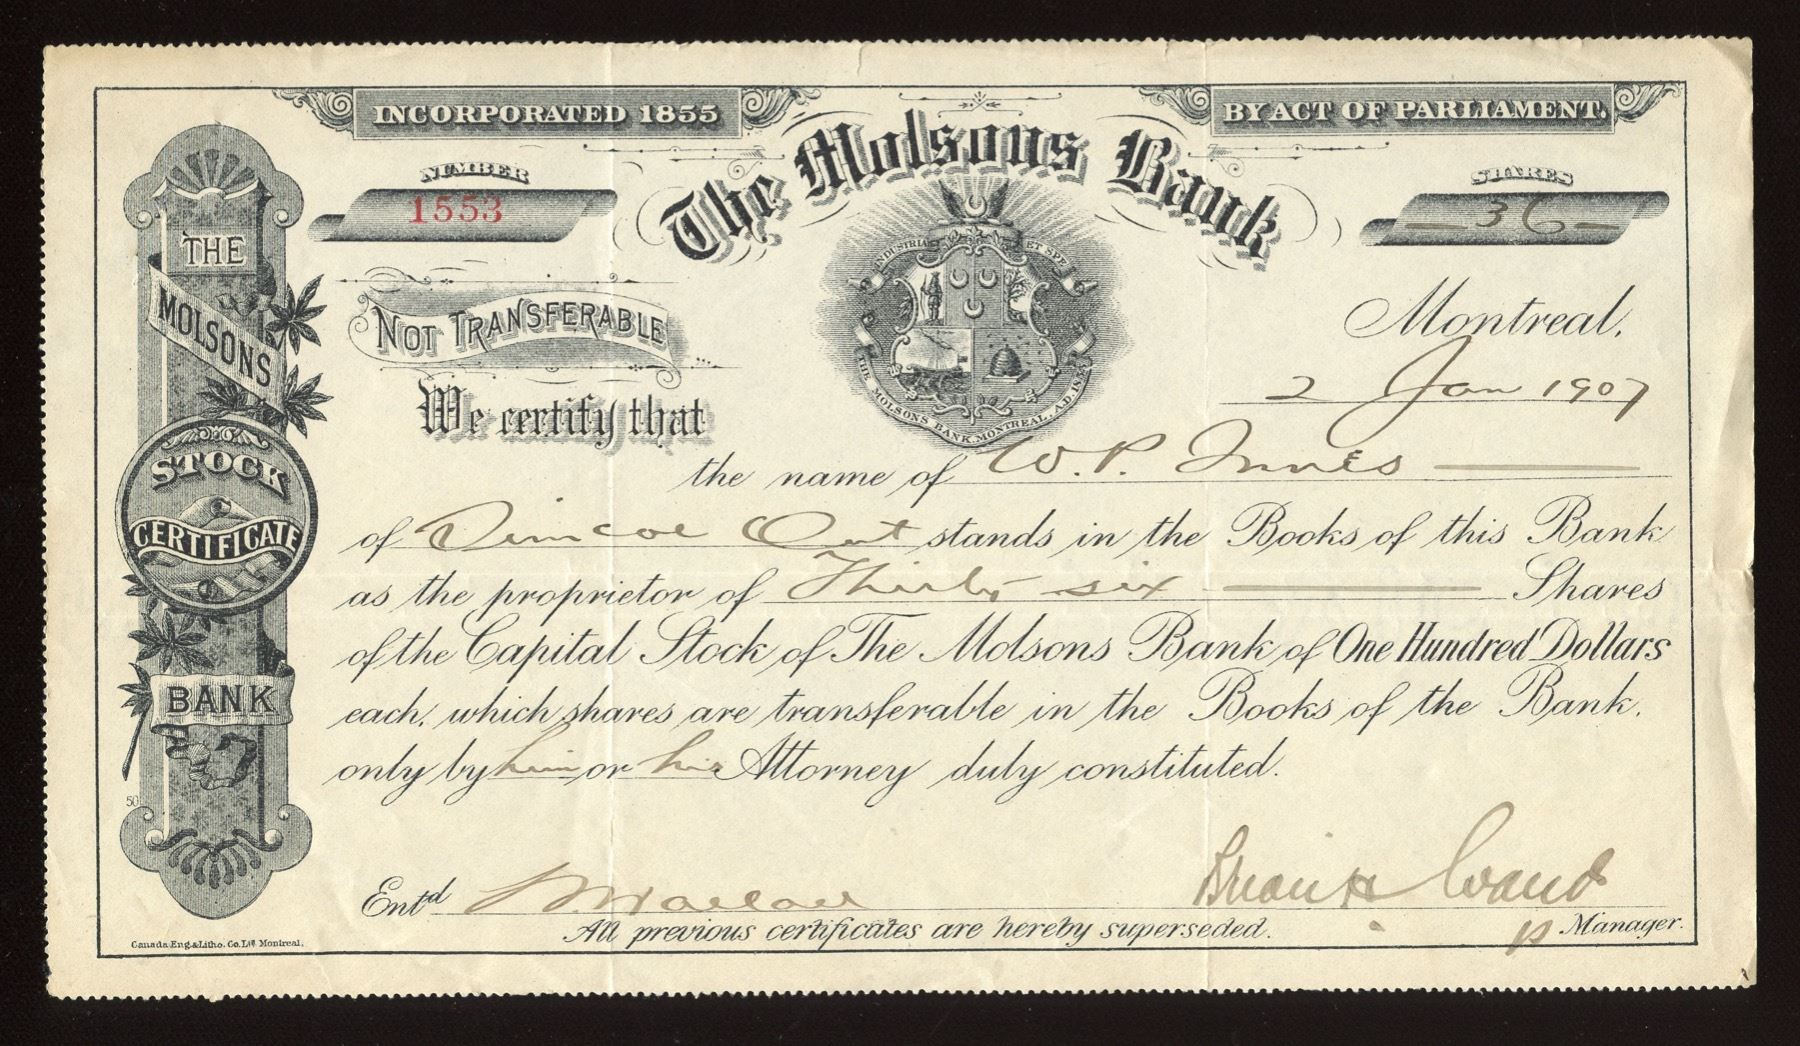 INCORPORATED 1855
BY ACT OF PARLIAMENT.
The Molsons Bank
NUMBER
1553
SHARES
— 36 —
INDUSTRIA ET SPE
THE MOLSONS BANK, MONTREAL, A.D. 1855
THE
MOLSONS
STOCK
CERTIFICATE
BANK
NOT TRANSFERABLE
Montreal,
2 Jan 1907
We certify that
the name of W. P. Innes
of Simcoe Ont stands in the Books of this Bank
as the proprietor of Thirty six Shares
of the Capital Stock of The Molsons Bank of One Hundred Dollars
each, which shares are transferable in the Books of the Bank,
only by him or his Attorney duly constituted.
50
Entd
p Manager.
All previous certificates are hereby superseded.
Canada Eng. & Litho. Co. Ltd. Montreal.